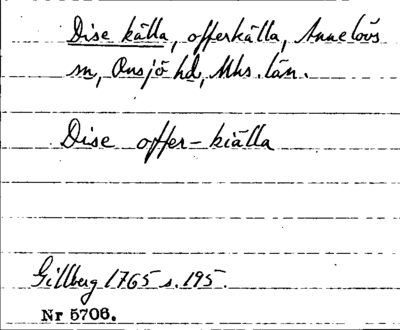 Dise källa, offerkälla, Anneløvs
sn, Onsjö hd, Mhs. län.
Dise offer-kiälla
Gillberg 1765 s. 195.
Nr 5706.